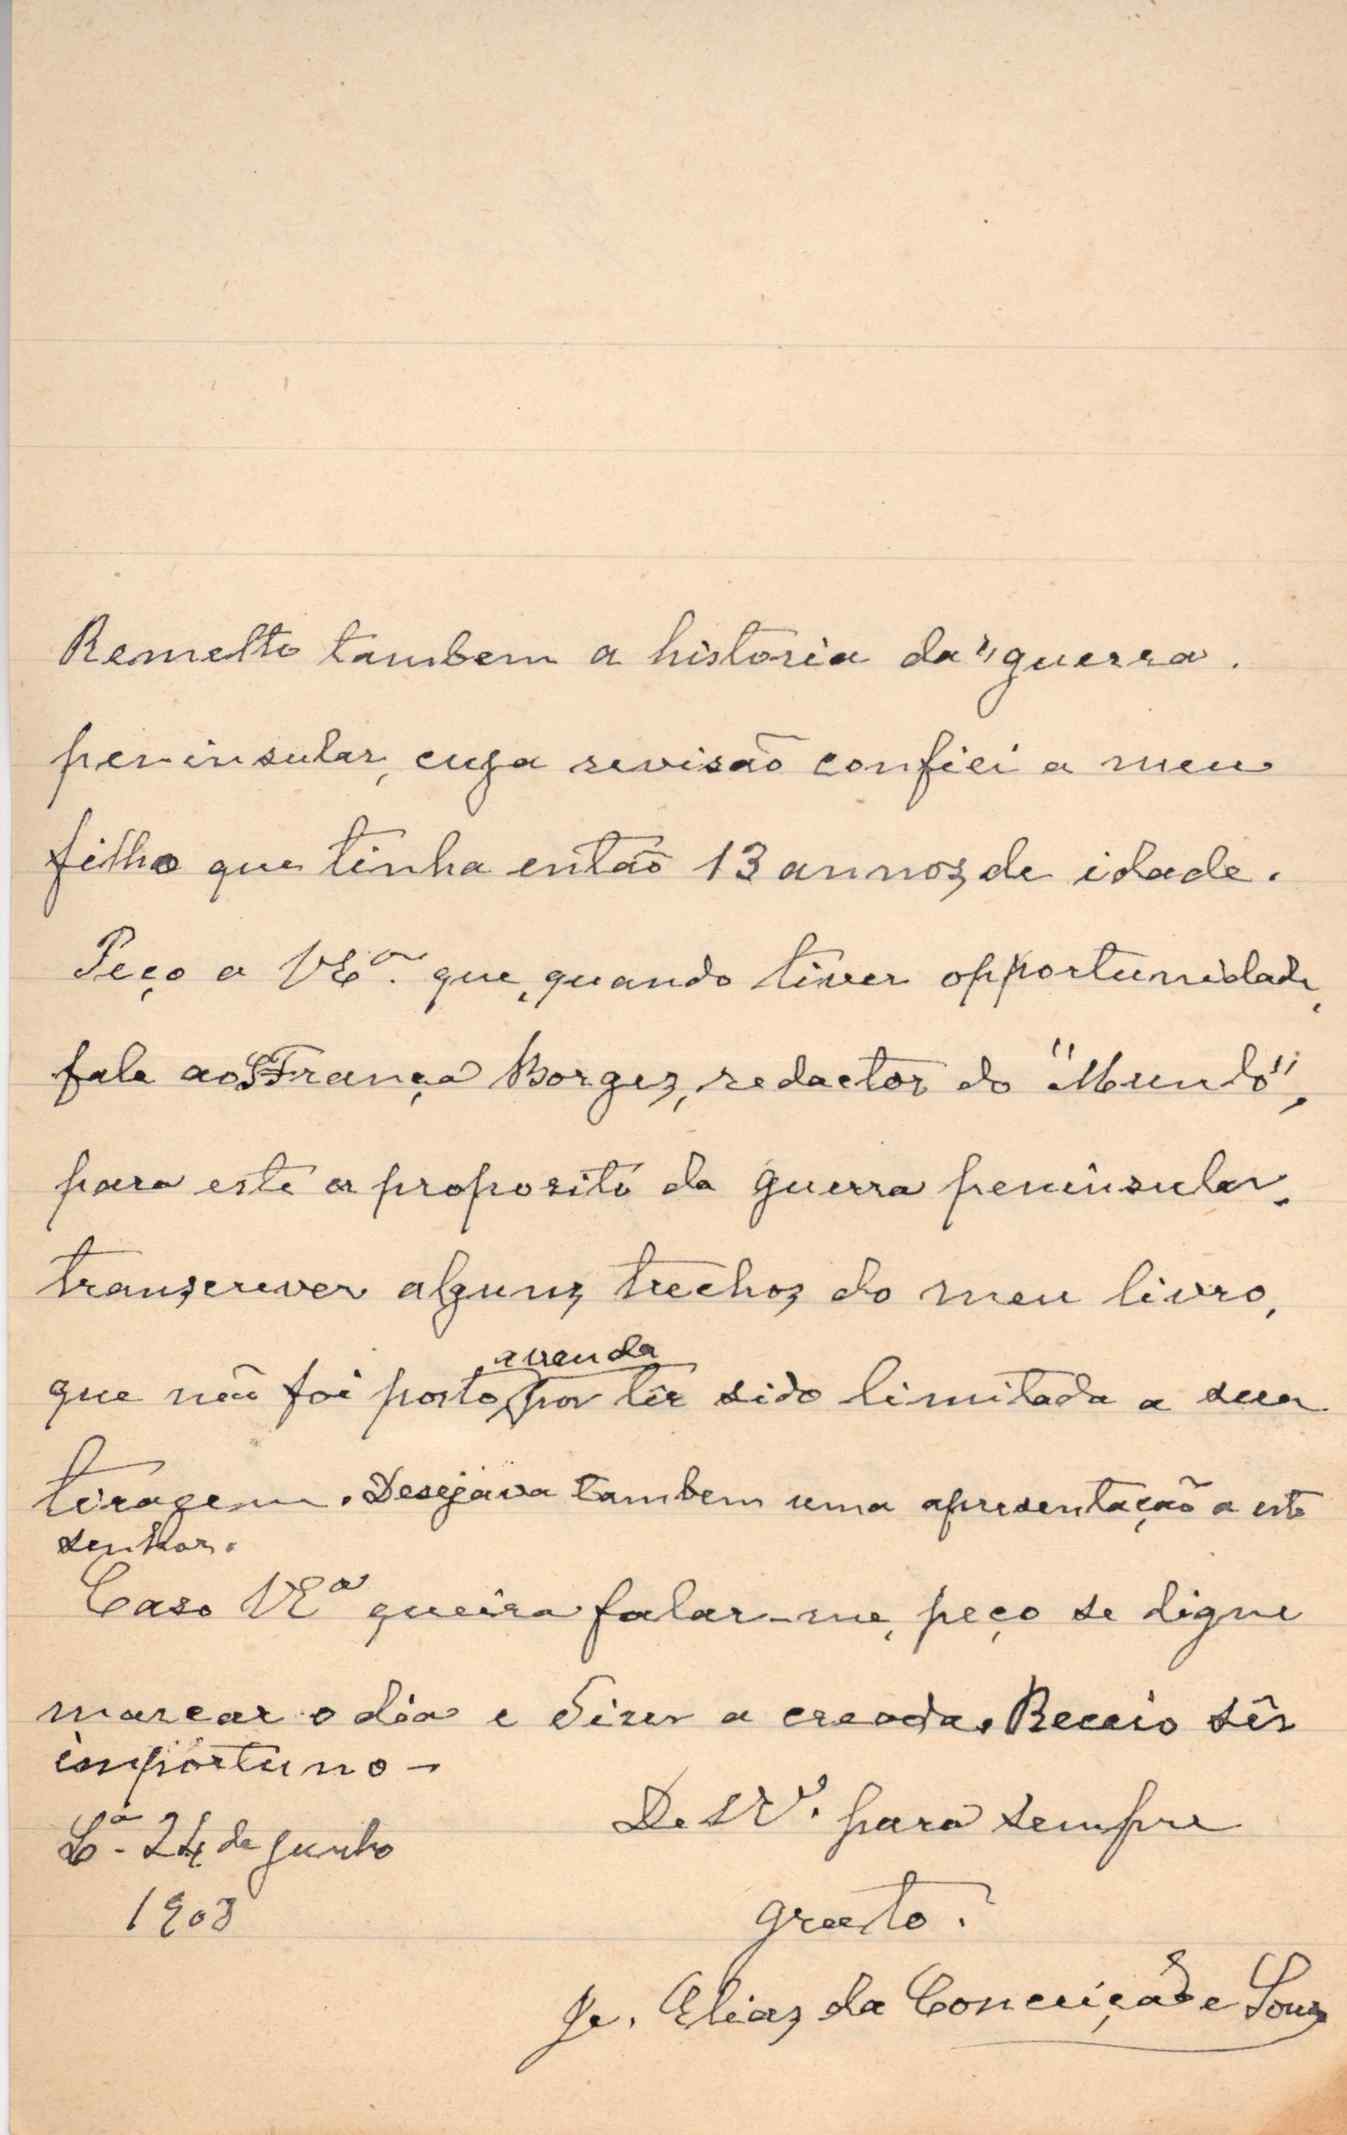 Remetto tambem a historia da "guerra
peninsular, cuja revisão confiei a meu
filho que tinha então 13 annos de idade.
Peço a VEª. que, quando tiver opportunidade,
fale ao França Borges, redactor do "Mundo",
para este a proposito da guerra peninsular,
transcrever alguns trechos do meu livro,
que não foi posto a venda por têr sido limitada a sua
tiragem. Desejava tambem uma apresentação a este
senhor.
Caso VEª queira falar-me, peço se digne
marcar o dia e dizer a creada. Receio sêr
importuno -
De V. para sempre
Lª. 24 de Junho
1903
grato.
Je. Elias da Conceição e Souza